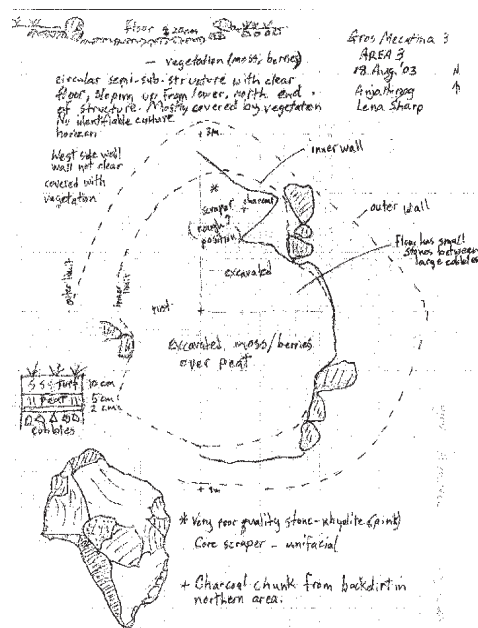 Floor
Gros Mecatina 3
AREA 3
18 Aug. '03
N
Lena Sharp
— vegetation (moss, berries)
circular semi-sub-structure with clear
floor, sloping up from lower, north end
of structure. Mostly covered by vegetation
No identifiable culture
horizon
West side wall
wall not clear
covered with
vegetation
+ 3m
inner wall
outer wall
*
scraper
(rough?
position)
charcoal
+
Floor has small
stones between
large cobbles
excavated
outer limit
inner limit
excavated moss/berries
over peat
turf 10 cm
peat 5 cm
2 cm
cobbles
* Very poor quality stone - rhyolite (pink)
Core scraper - unifacial
+ Charcoal chunk from backdirt in
northern area.